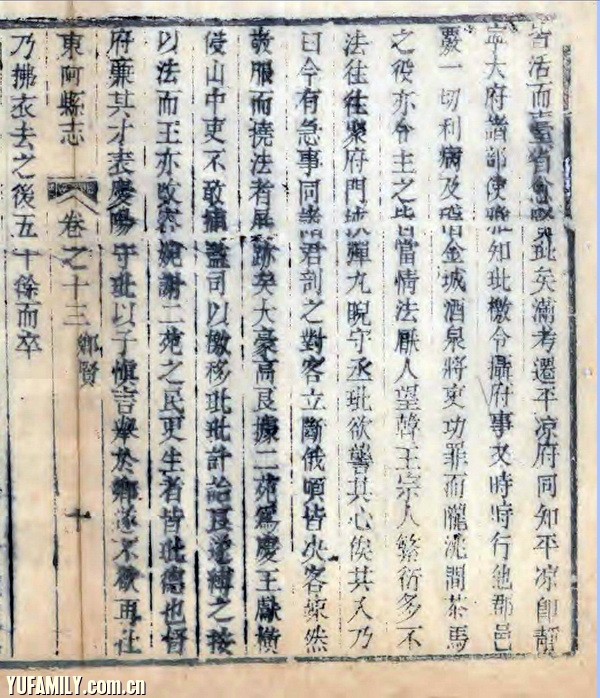 皆活而臺省僉賢玭矣滿考遷平凉府同知平凉卽靜
寧大府諸部使雅知玭檄令攝府事又時時行他郡邑
覈一切利病及稽金城酒泉將吏功罪而隴洮間茶馬
之役亦令主之皆當情法厭人望韓王宗人繁衍多不
法往往集府門挾彈丸睨守丞玭欲讋其心俟其入乃
曰今有急事同諸君剖之對客立斷俄頃皆决客悚然
歛服而撓法者屏跡矣大豪高艮據二苑爲慶王獻橫
侵山中吏不敢捕監司以檄移玭玭計詒艮遂縛之按
以法而王亦改容婉謝二苑之民更生者皆玭德也督
府廉其才表慶陽守玭以子愼言舉於鄉遂不欲再仕
東阿縣志
卷之十三
鄉賢
十
乃拂衣去之後五十餘而卒
YUFAMILY.com.cn